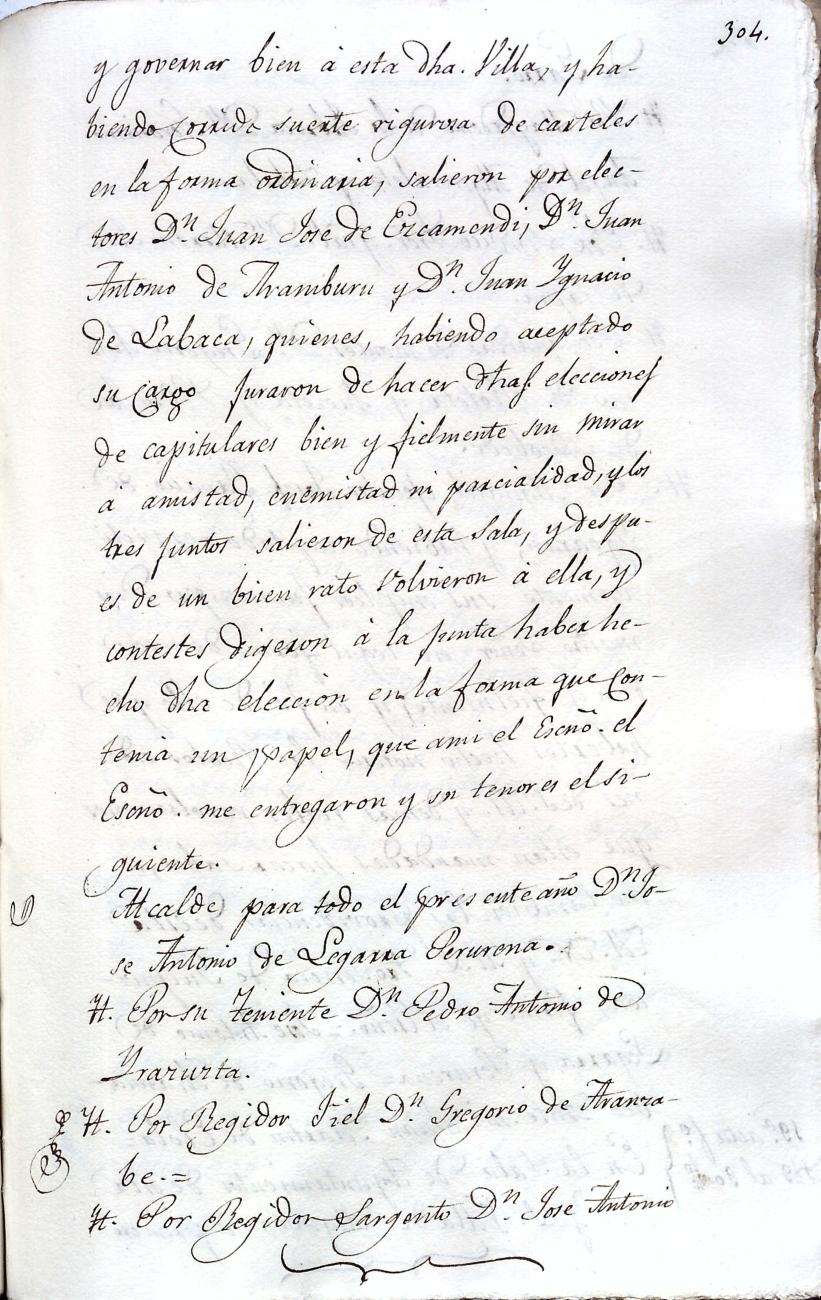 304.
y governar bien á esta dha. Villa, y ha-
biendo corrido suerte rigurosa de carteles
en la forma ordinaria, salieron por elec-
tores Dn. Juan Jose de Ezcamendi, Dn. Juan
Antonio de Aramburu y Dn. Juan Ygnacio
de Labaca, quienes, habiendo aceptado
su cargo juraron de hacer dhas. elecciones
de capitulares bien y fielmente sin mirar
á amistad, enemistad ni parcialidad, y los
tres juntos salieron de esta sala, y despu-
es de un buen rato volvieron á ella, y
contestes digeron á la junta haber he-
cho dha eleccion en la forma que con-
tenia un papel, que ami el Escño. el
Escño. me entregaron y su tenor es el si-
guiente.
Alcalde para todo el presente año Dn. Jo-
se Antonio de Legarra Perurena.
Yt. Por su Teniente Dn. Pedro Antonio de
Yrazuzta.
Yt. Por Regidor Fiel Dn. Gregorio de Aranza-
be.=
Yt. Por Regidor Sargento Dn. Jose Antonio